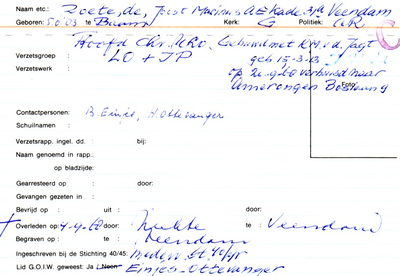 Naam etc.: Zoete, de, Joost Marinus, AE kade 31a Veendam
Geboren: 5 0 03 te Baarn Kerk: G Politiek: UR
Hoofd Chr. MRo, Gehuwd met
geb 15-3-03
Verzetsgroep : LO + JP
Verzetswerk :
op verhuisd naar
Amerongen
Foto
Contactpersonen: B. Einjes, H. Ottevanger
Schuilnaam :
Verzetsrapp. ingel. dd. : bij:
Naam genoemd in rapp.:
op bladzijde:
Gearresteerd op : door:
Gevangen gezeten in :
Bevrijd op : uit : door: te :
Overleden op: 4-9-62 door: Ziekte te : Veendam
Begraven op : te Veendam
Ingeschreven bij de Stichting 40/45: Medew St. 40/45
Lid G.O.I.W. geweest: Ja / Neen Einjes-Ottevanger